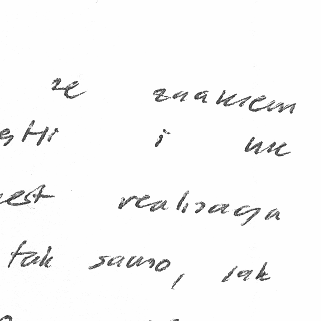 ze znakiem
i nie
jest realizacja
tak samo, jak